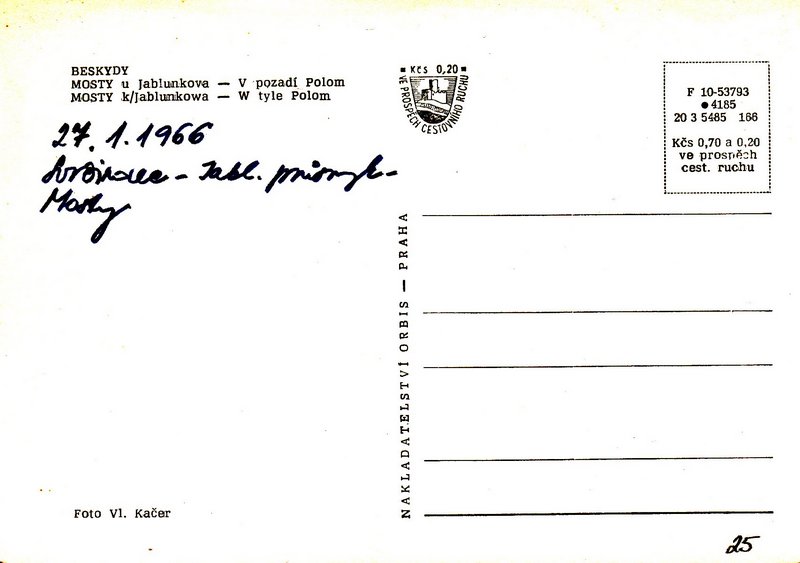 BESKYDY
MOSTY u Jablunkova — V pozadí Polom
MOSTY k/Jablunkowa — W tyle Polom
27. 1. 1966
- Jabl. průsmyk -
Mosty
Foto Vl. Kačer
Kčs 0,20
VE PROSPĚCH CESTOVNÍHO RUCHU
NAKLADATELSTVÍ ORBIS — PRAHA
F 10-53793
● 4185
20 3 5485 166
Kčs 0,70 a 0,20
ve prospěch
cest. ruchu
25